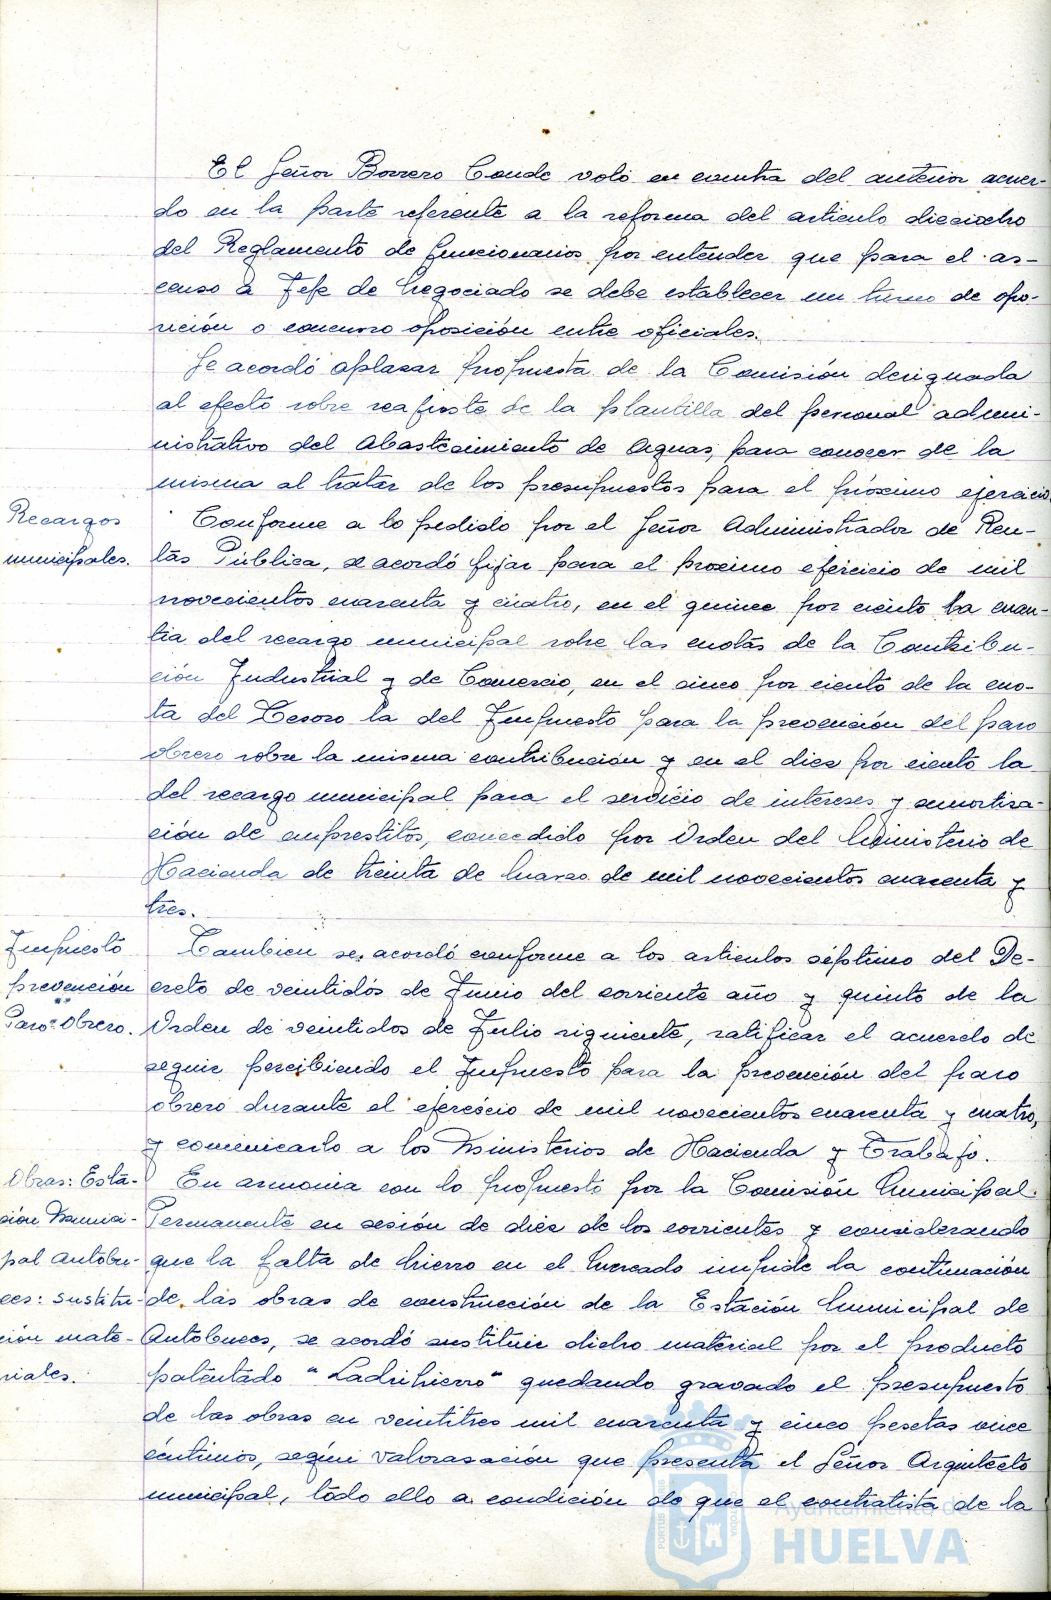 El Señor Borrero Conde votó en contra del anterior acuer-
do en la parte referente a la reforma del articulo dieciocho
del Reglamento de funcionarios por entender que para el as-
censo a Jefe de Negociado se debe establecer un turno de opo-
sición o concurso oposición entre oficiales.
Se acordó aplazar propuesta de la Comisión designada
al efecto sobre reajuste de la plantilla del personal admini-
nistrativo del Abastecimiento de Aguas, para conocer de la
misma al tratar de los presupuestos para el próximo ejercicio.
Recargos
municipales.
Conforme a lo pedido por el Señor Administrador de Ren-
tas Pública, se acordó fijar para el proximo ejercicio de mil
novecientos cuarenta y cuatro, en el quince por ciento la cuan-
tia del recargo municipal sobre las cuotas de la Contribu-
ción Industrial y de Comercio, en el cinco por ciento de la cuo-
ta del Tesoro la del Impuesto para la prevención del paro
obrero sobre la misma contribución y en el diez por ciento la
del recargo municipal para el servicio de intereses y amortiza-
ción de emprestitos, concedido por Orden del Ministerio de
Hacienda de treinta de Marzo de mil novecientos cuarenta y
tres.
Impuesto
prevención
Paro Obrero.
Tambien se acordó conforme a los articulos séptimo del De-
creto de veintidós de Junio del corriente año y quinto de la
Orden de veintidos de Julio siguiente, ratificar el acuerdo de
seguir percibiendo el Impuesto para la prevención del paro
obrero durante el ejercicio de mil novecientos cuarenta y cuatro,
y comunicarlo a los Ministerios de Hacienda y Trabajo.
Obras: Esta-
ción Munici-
pal Autobu-
ces: sustitu-
ción mate-
riales.
En armonia con lo propuesto por la Comisión Municipal
Permanente en sesión de diez de los corrientes y considerando
que la falta de hierro en el Mercado impide la continuación
de las obras de construcción de la Estación Municipal de
Autobuces, se acordó sustituir dicho material por el producto
patentado "Ladrihierro" quedando gravado el presupuesto
de las obras en veintitres mil cuarenta y cinco pesetas once
céntimos, según valorasación que presenta el Señor Arquitecto
municipal, todo ello a condición de que el contratista de la
Ayuntamiento de
HUELVA